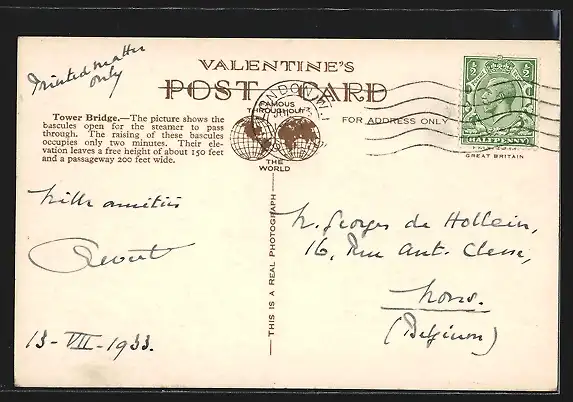 Printed matter
only
VALENTINE'S
POST CARD
FAMOUS
THROUGHOUT
THE
WORLD
FOR ADDRESS ONLY
½ ½
HALFPENNY
GREAT BRITAIN
LONDON W.1
Tower Bridge.—The picture shows the
bascules open for the steamer to pass
through. The raising of these bascules
occupies only two minutes. Their ele-
vation leaves a free height of about 150 feet
and a passageway 200 feet wide.
THIS IS A REAL PHOTOGRAPH
Mille amitiés
13-VII-1933.
M. Georges de Hollain,
16, Rue Ant. Clesse,
Mons.
(Belgium)